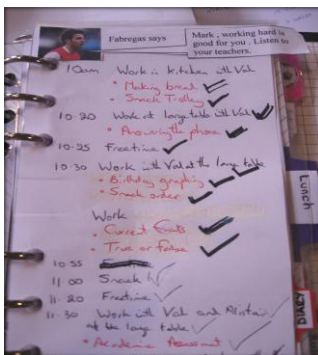 Fabregas says
Mark, working hard is
good for you. Listen to
your teachers.
10am Work in kitchen with Val
• Making bread
• Snack Trolley
10-20 Work at large table with Val
• Answering the phone
10-25 Freetime
10-30 Work with Val at the large table
• Birthday graphing
• Snack order
Work
• Current Events
• True or false
10 55
11 00 Snack
11-20 Freetime
11-30 Work with Val and Alistair
at the large table
• Academic Assessment
Lunch
DIARY